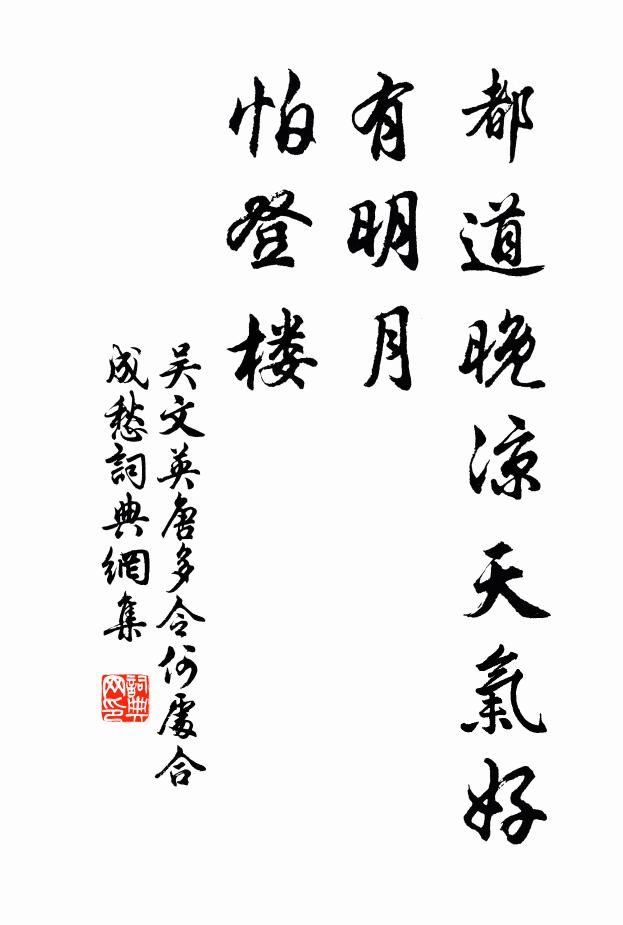 都道晚涼天氣好
有明月
怕登楼
吴文英唐多令何處合
成愁詞典網集
詞典
网印